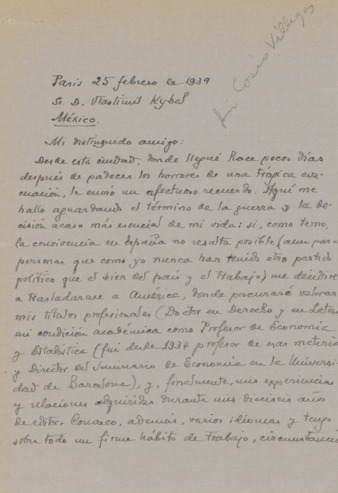 Sin Cosío Villegas
Paris 25 febrero de 1939
Sr. D. Vlastimil Kybal
México.
Mi distinguido amigo:
Desde esta ciudad, donde llegué hace pocos días
después de padecer los horrores de una trágica eva-
cuación, le envío un afectuoso recuerdo. Aquí me
hallo aguardando el término de la guerra y la de-
cisión acaso más esencial de mi vida: si, como temo,
la convivencia en España no resulta posible (aun para
personas que como yo nunca han tenido otro partido
político que el bien del país y el trabajo) me decidiré
a trasladarme a América, donde procuraré valorar
mis títulos profesionales (Doctor en Derecho y en Letras
mi condición académica como Profesor de Economía
y Estadística (fui desde 1934 profesor de esas materias
y Director del Seminario de Economía en la Universi-
dad de Barcelona), y, finalmente, mis experiencias
y relaciones adquiridas durante mis dieciseis años
de editor. Conozco, además, varios idiomas y tengo
sobre todo un firme hábito de trabajo, circunstancia